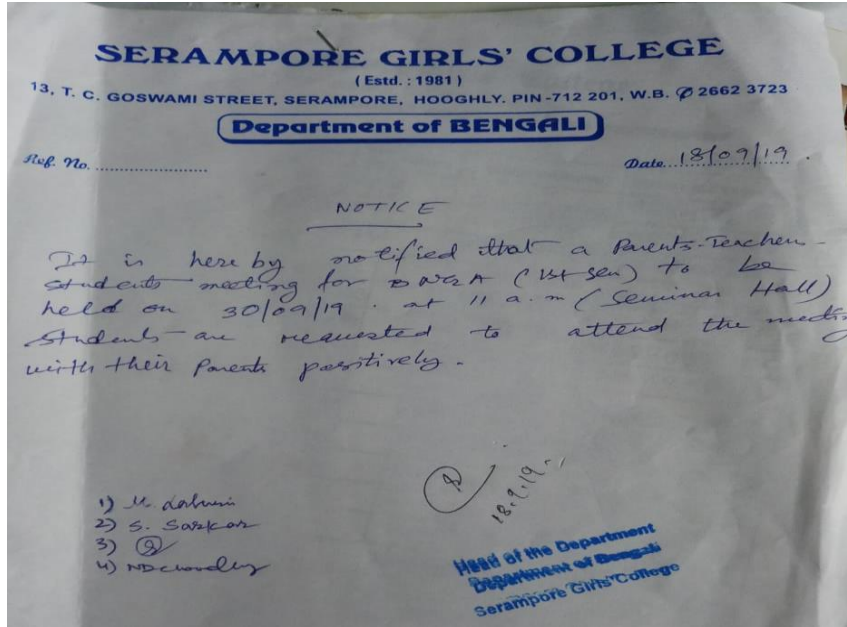 SERAMPORE GIRLS' COLLEGE
(Estd. : 1981)
13, T. C. GOSWAMI STREET, SERAMPORE, HOOGHLY. PIN-712 201, W.B. ✆ 2662 3723
Department of BENGALI
Ref. No. ........................ Date 18/09/19 .
NOTICE
It is here by notified that a Parents-Teacher-
students meeting for BNGA (1st sem) to be
held on 30/09/19. at 11 a.m (Seminar Hall)
Students are requested to attend the meeting
with their Parents positively.
18.9.19
1) M.
2) S. Sarkar
3)
4)
Head of the Department
Department of Bengali
Serampore Girls' College